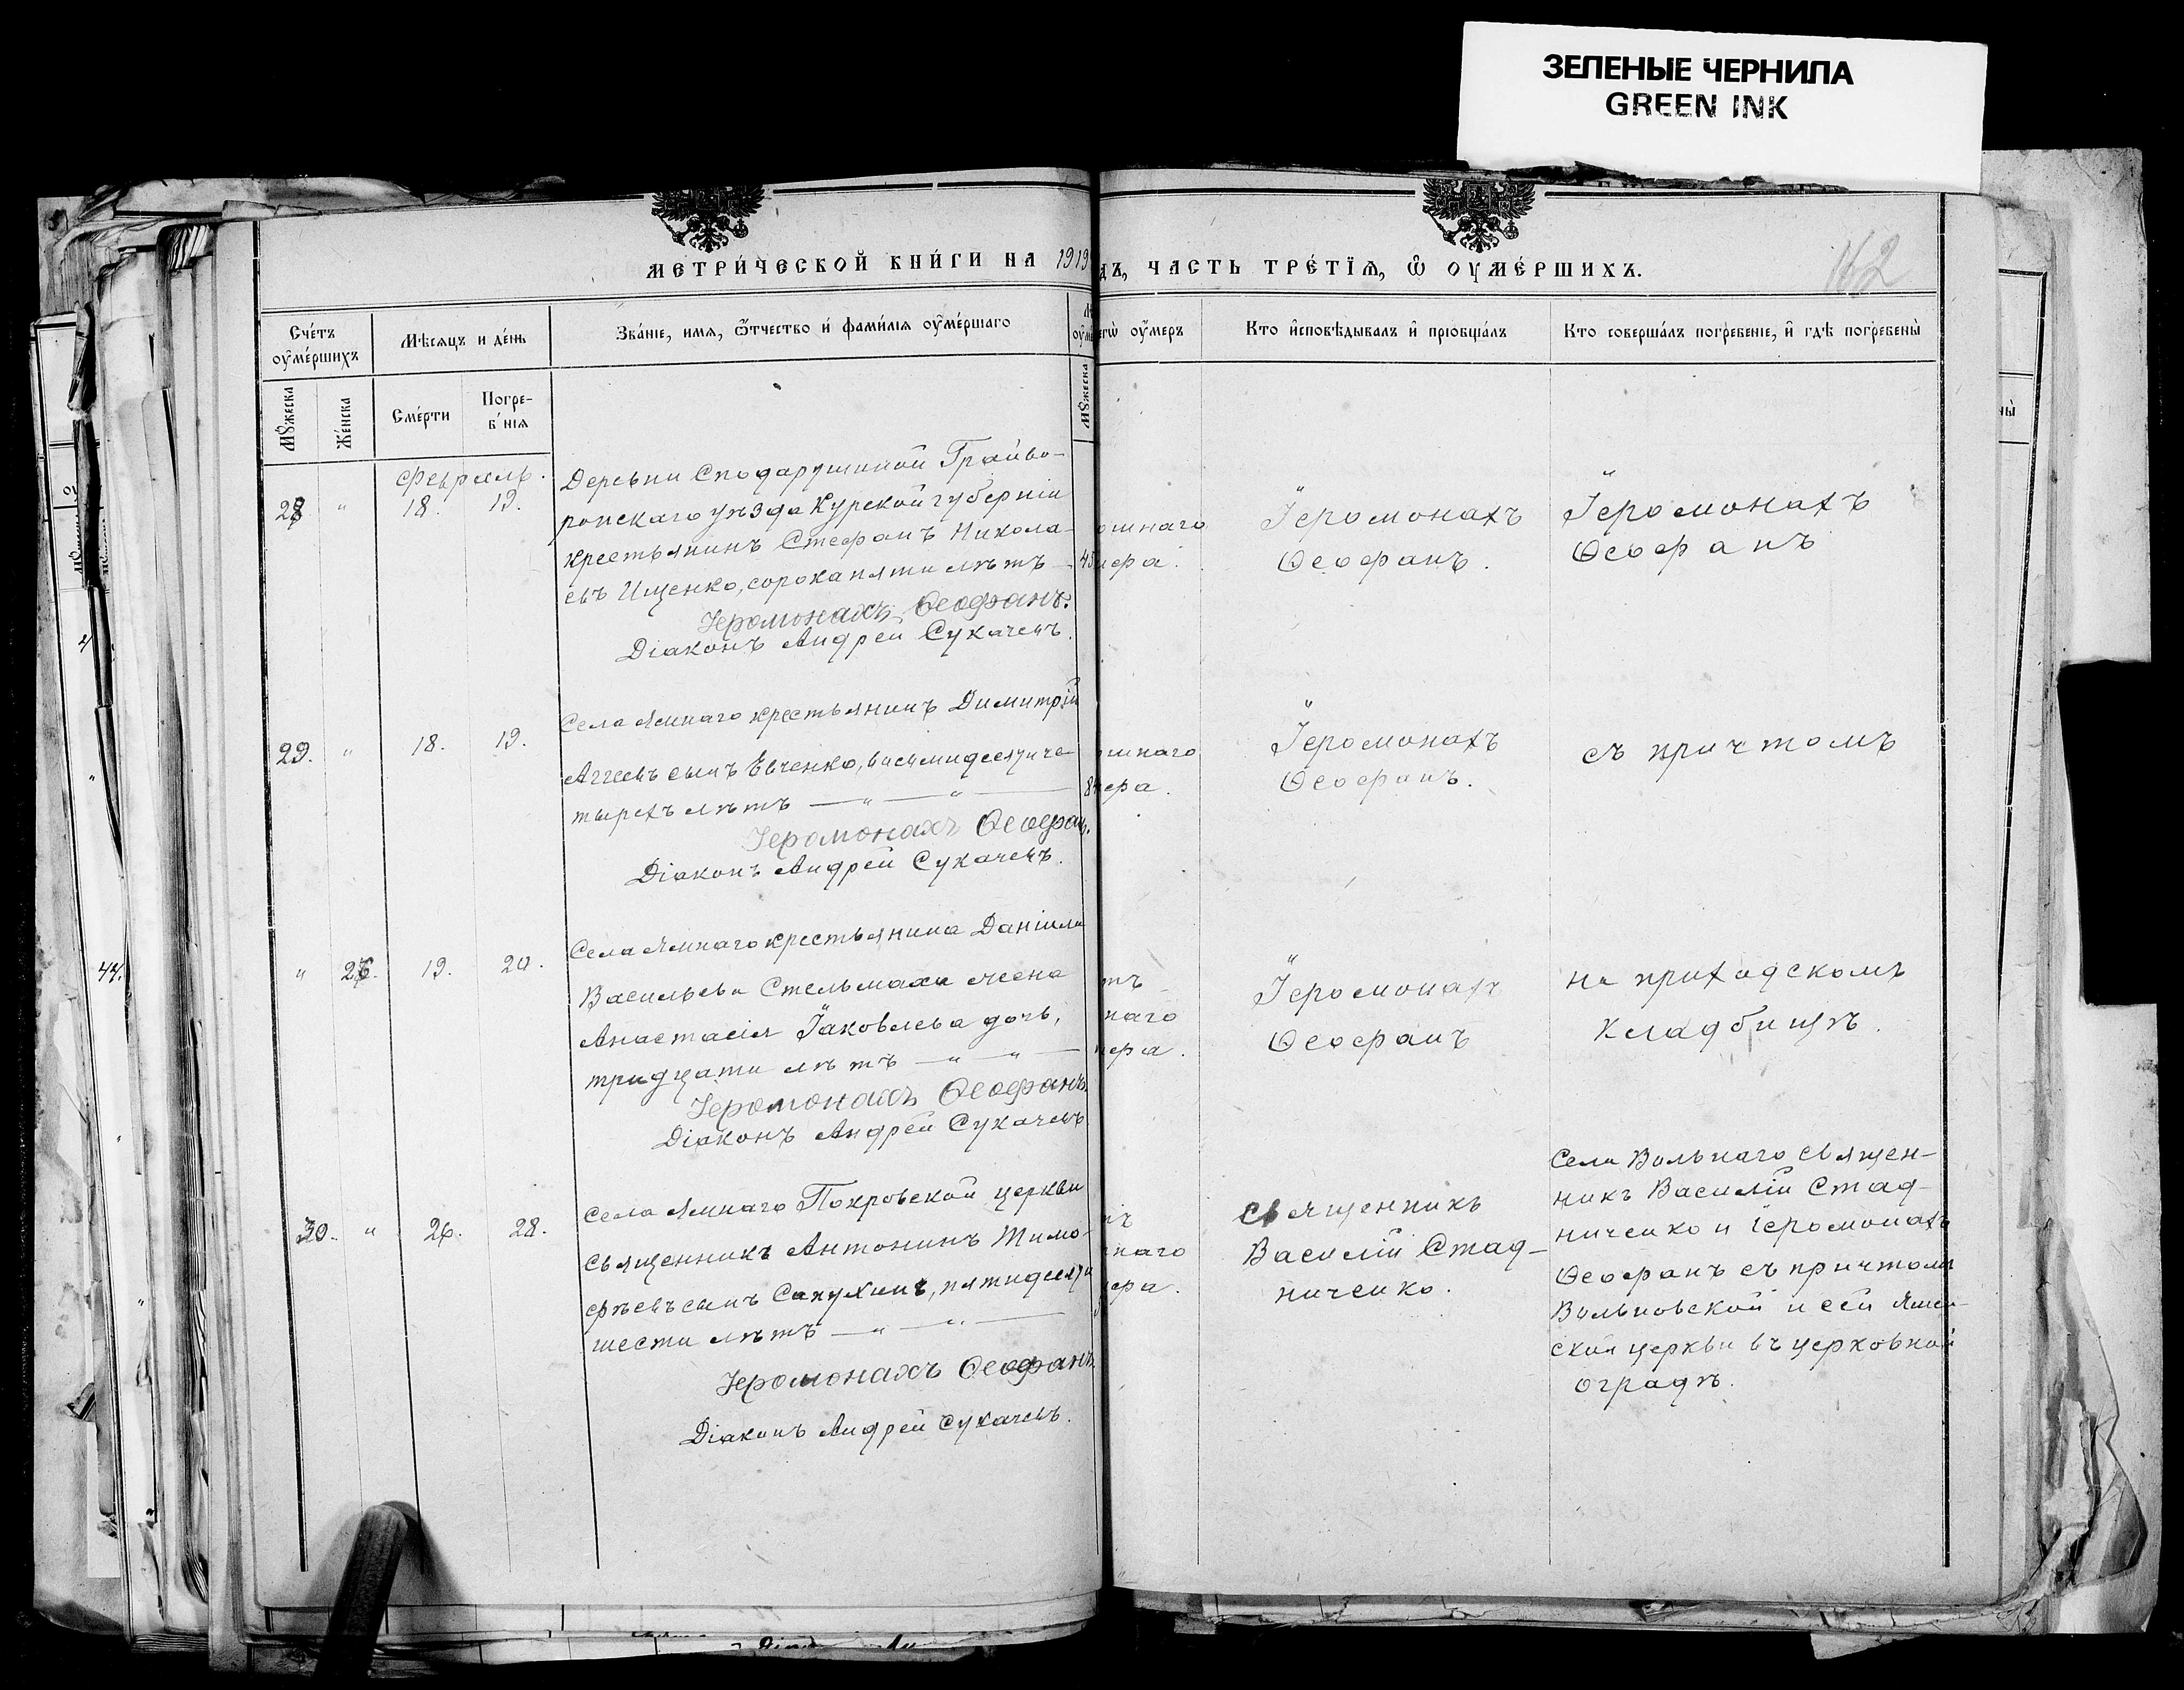 ЗЕЛЕНЫЕ ЧЕРНИЛА
GREEN INK
162
МЕТРИ́ЧЕСКОЙ КНИ́ГИ НА 1919
дъ, ЧАСТЬ ТРЕ́ТЇѦ, Ѽ ОУМЕ́РШИХЪ.
Сче́тъ оумершихъ
Мѣсяцъ и де́нь
Зва́ніе, имя, ѿтчество и́ фами́лія оуме́ршаго
егѡ оумеръ
Кто и҆сповѣ́дывалъ и҆ пріѡбща́лъ
Кто соверша́лъ погребеніе, и҆ гдѣ погребены̀
Мꙋжеска
Же́нска
Сме́рти
Погребнія
Мꙋжеска
Февраль.
28 " 18. 19.
Деревни Сподарушиной Грайво-
ронскаго уѣзда Курской губерніи
крестьянинъ Стефанъ Никола-
евъ Ищенко, сорока пяти лѣтъ —
45
Іеромонахъ Ѳеофанъ.
Діаконъ Андрей Сукачевъ.
шнаго
мера.
Іеромонахъ
Ѳеофанъ.
Іеромонахъ
Ѳеофанъ
29. " 18. 19.
Села Ямнаго крестьянинъ Димитрій
Аггеевъ сынъ Евченко, восьмидесяти че-
тырехъ лѣтъ — " — " —
84
Іеромонахъ Ѳеофанъ.
Діаконъ Андрей Сукачевъ.
шнаго
мера.
Іеромонахъ
Ѳеофанъ.
съ причтомъ
" 26. 19. 20.
Села Ямнаго крестьянина Даніила
Васильева Стельмаха жена
Анастасія Іаковлева дочь,
тридцати лѣтъ — " — " —
Іеромонахъ Ѳеофанъ.
Діаконъ Андрей Сукачевъ
тъ
наго
мера.
Іеромонахъ
Ѳеофанъ
на приходскомъ
кладбищѣ.
30. " 26. 28.
Села Ямнаго Покровской церкви
священникъ Антонинъ Тимо-
фѣевъ сынъ Сапухинъ, пятидесяти
шести лѣтъ — " — " —
Іеромонахъ Ѳеофанъ
Діаконъ Андрей Сукачевъ.
наго
мера.
Священникъ
Василій Стад-
ниченко.
Села Вольнаго священ-
никъ Василій Стад-
ниченко и іеромонахъ
Ѳеофанъ съ причтомъ
Вольновской и сей Ямен-
ской церкви въ церковной
оградѣ.